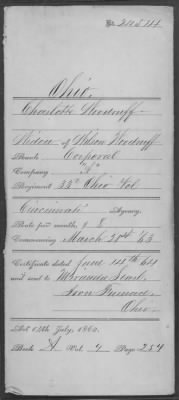 No. 210.514
Ohio.
Charlotte Woodruff
Widow of Wilson Woodruff
Rank Corporal
Company "A"
Regiment 33d Ohio Vol
Cincinnati Agency.
Rate per month, $ 8
Commencing March 28th 63
Certificate dated June 14th 64
and sent to Miranda
Iron Furnace
Ohio.
Act 14th July, 1862.
Book A Vol. 4 Page 254